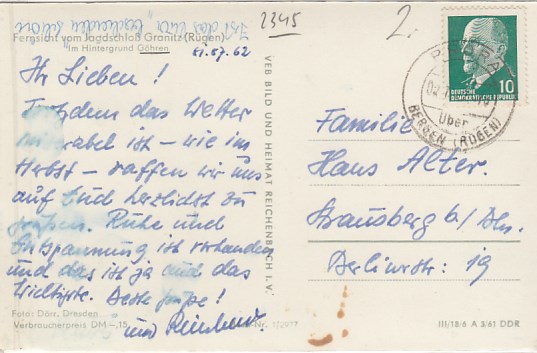 2345
2.
Ist das
schon
Fernsicht vom Jagdschloß Granitz (Rügen)
Im Hintergrund Göhren
21.07.62
Ihr Lieben!
Trotzdem das Wetter
miserabel ist - wie im
Herbst - raffen wir uns
auf Euch herzlichst zu
grüßen. Ruhe und
Entspannung ist vorhanden
und das ist ja auch das
Wichtigste. Beste Grüße!
und
Foto: Dörr, Dresden
Verbraucherpreis DM -,15
VEB BILD UND HEIMAT REICHENBACH I. V.
10
DEUTSCHE
DEMOKRATISCHE REPUBLIK
über
BERGEN (RÜGEN)
Familie
Hans Alter.
Strausberg b/ Bln.
Berlinerstr: 19
III/18/6 A 3/61 DDR